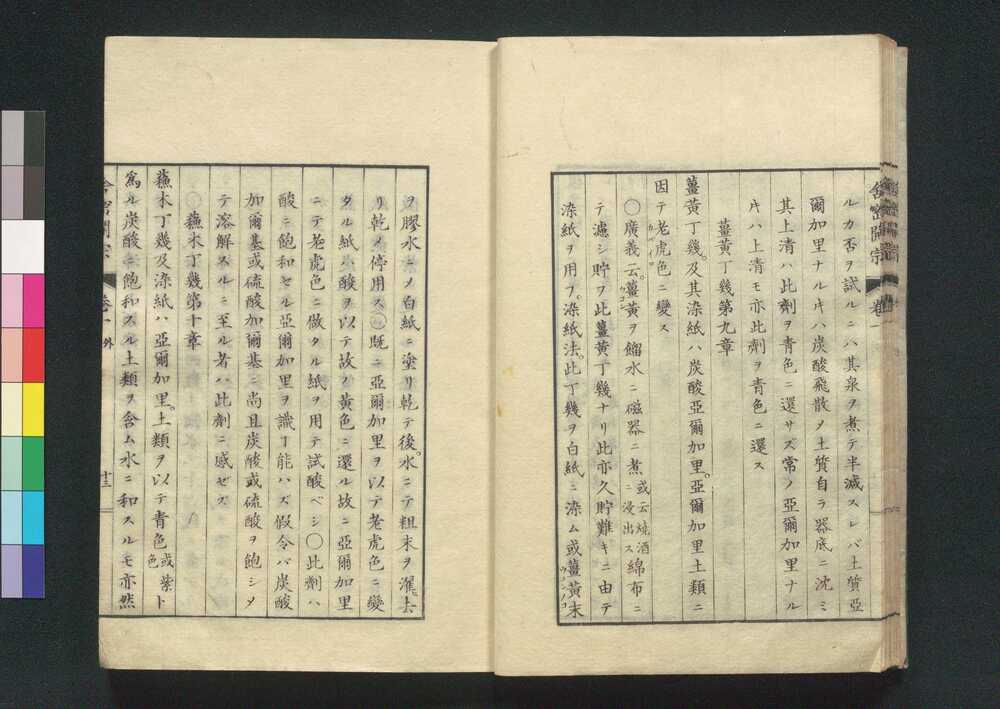 ルカ否ヲ試ルニハ其泉ヲ煮テ半減スレバ土質亞
爾加里ナルキハ炭酸飛散メ土質自ラ器底ニ沈ミ
其上清ハ此劑ヲ青色ニ還サズ常ノ亞爾加里ナル
キハ上清モ亦此劑ヲ青色ニ還ス
薑黄丁幾第九章
薑黄丁幾。及其染紙ハ炭酸亞爾加里。亞爾加里土類ニ
因テ老虎色ニ變ス
〇廣義云。薑黄ヲ餾水ニ磁器ニ煮或云燒酒ニ浸出ス綿布ニ
テ濾シ貯フ此薑黄丁幾ナリ此亦久貯難キニ由テ
染紙ヲ用フ。染紙法。此丁幾ヲ白紙ニ染ム或薑黄末
ヲ膠水ニメ白紙ニ塗リ乾テ後。水ニテ粗末ヲ濯去
リ乾メ停用ス〇既ニ亞爾加里ヲ以テ老虎色ニ變
タル紙ハ酸ヲ以テ故ノ黄色ニ還ル故ニ亞爾加里
ニテ老虎色ニ做タル紙ヲ用テ試酸ベシ〇此劑ハ
酸ニ飽和セル亞爾加里ヲ識ヿ能ハズ假令バ炭酸
加爾基或硫酸加爾基ニ尚且炭酸或硫酸ヲ飽シメ
テ溶解スルニ至ル者ハ此劑ニ感ゼズ
〇蘓木丁幾第十章
蘓木丁幾及染紙ハ亞爾加里。土類ヲ以テ青色或紫色ト
爲ル炭酸ニ飽和スル土類ヲ含ム水ニ和スルモ亦然
舎密開宗
卷一
外
十三